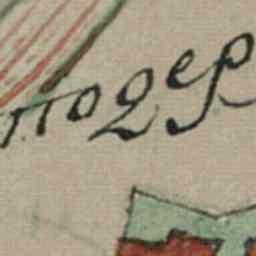 подер